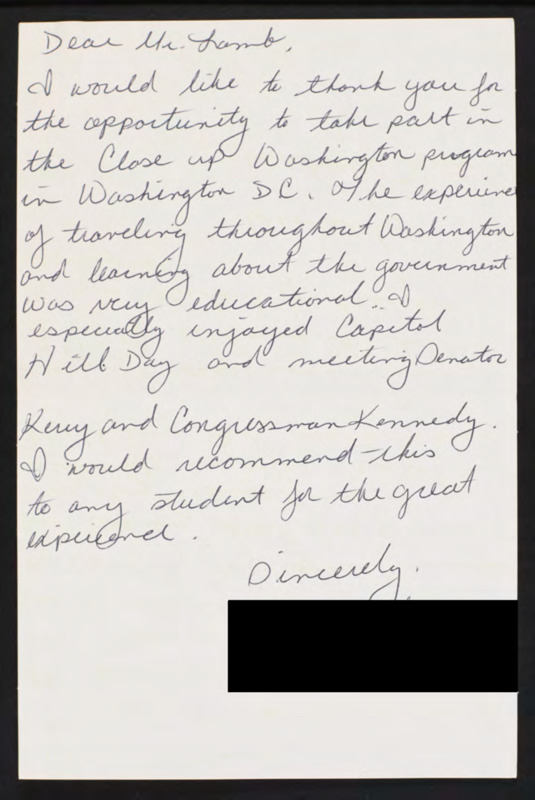 Dear Mr. Lamb,
I would like to thank you for
the opportunity to take part in
the Close up Washington program
in Washington DC. The experience
of traveling throughout Washington
and learning about the government
was very educational. I
especially injoyed Capitol
Hill Day and meeting Senator
Kerry and Congressman Kennedy.
I would recommend this
to any student for the great
experience.
Sincerely,